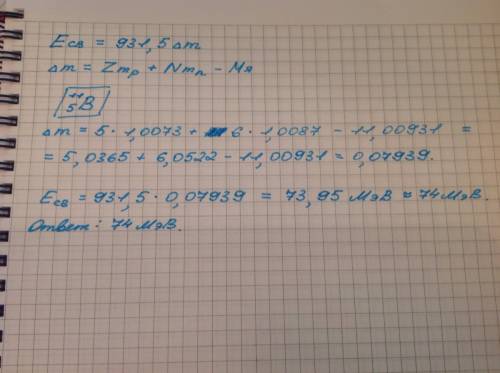 Есв = 931,5 Δm
Δm = Zmp + Nmn - Mя
¹¹₅B
Δm = 5 · 1,0073 + 6 · 1,0087 - 11,00931 =
= 5,0365 + 6,0522 - 11,00931 = 0,07939.
Есв = 931,5 · 0,07939 = 73,95 МэВ ≈ 74 МэВ.
Ответ: 74 МэВ.